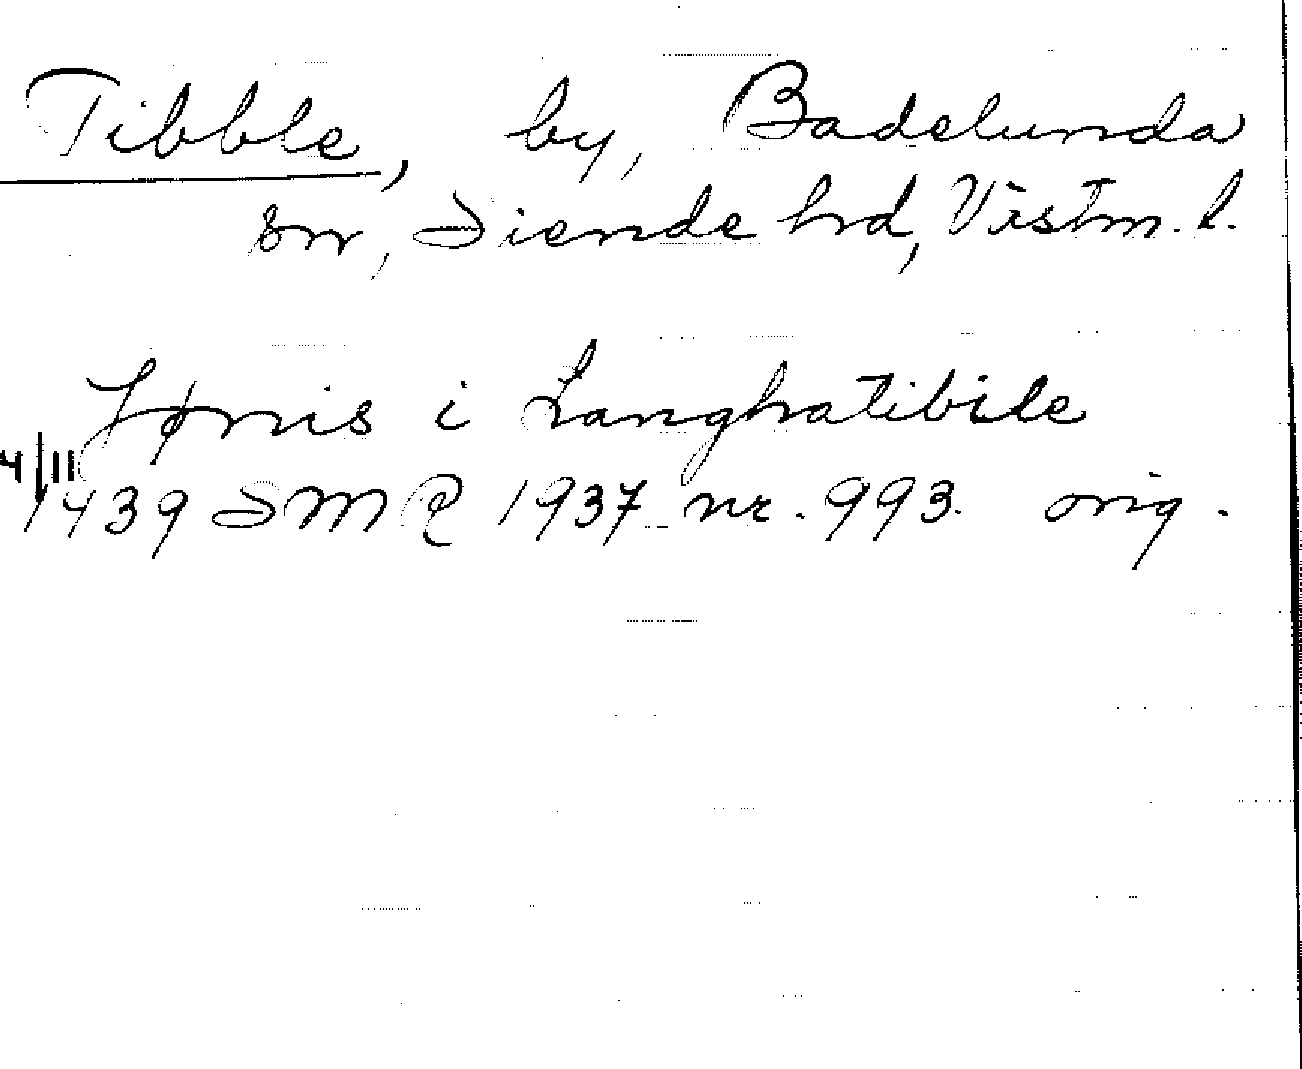 Tibble, by, Badelunda
sn, Siende hd, Västm. l.
Jønis i Langhatibile
4/11
1439 SMR 1937 nr. 993. orig.